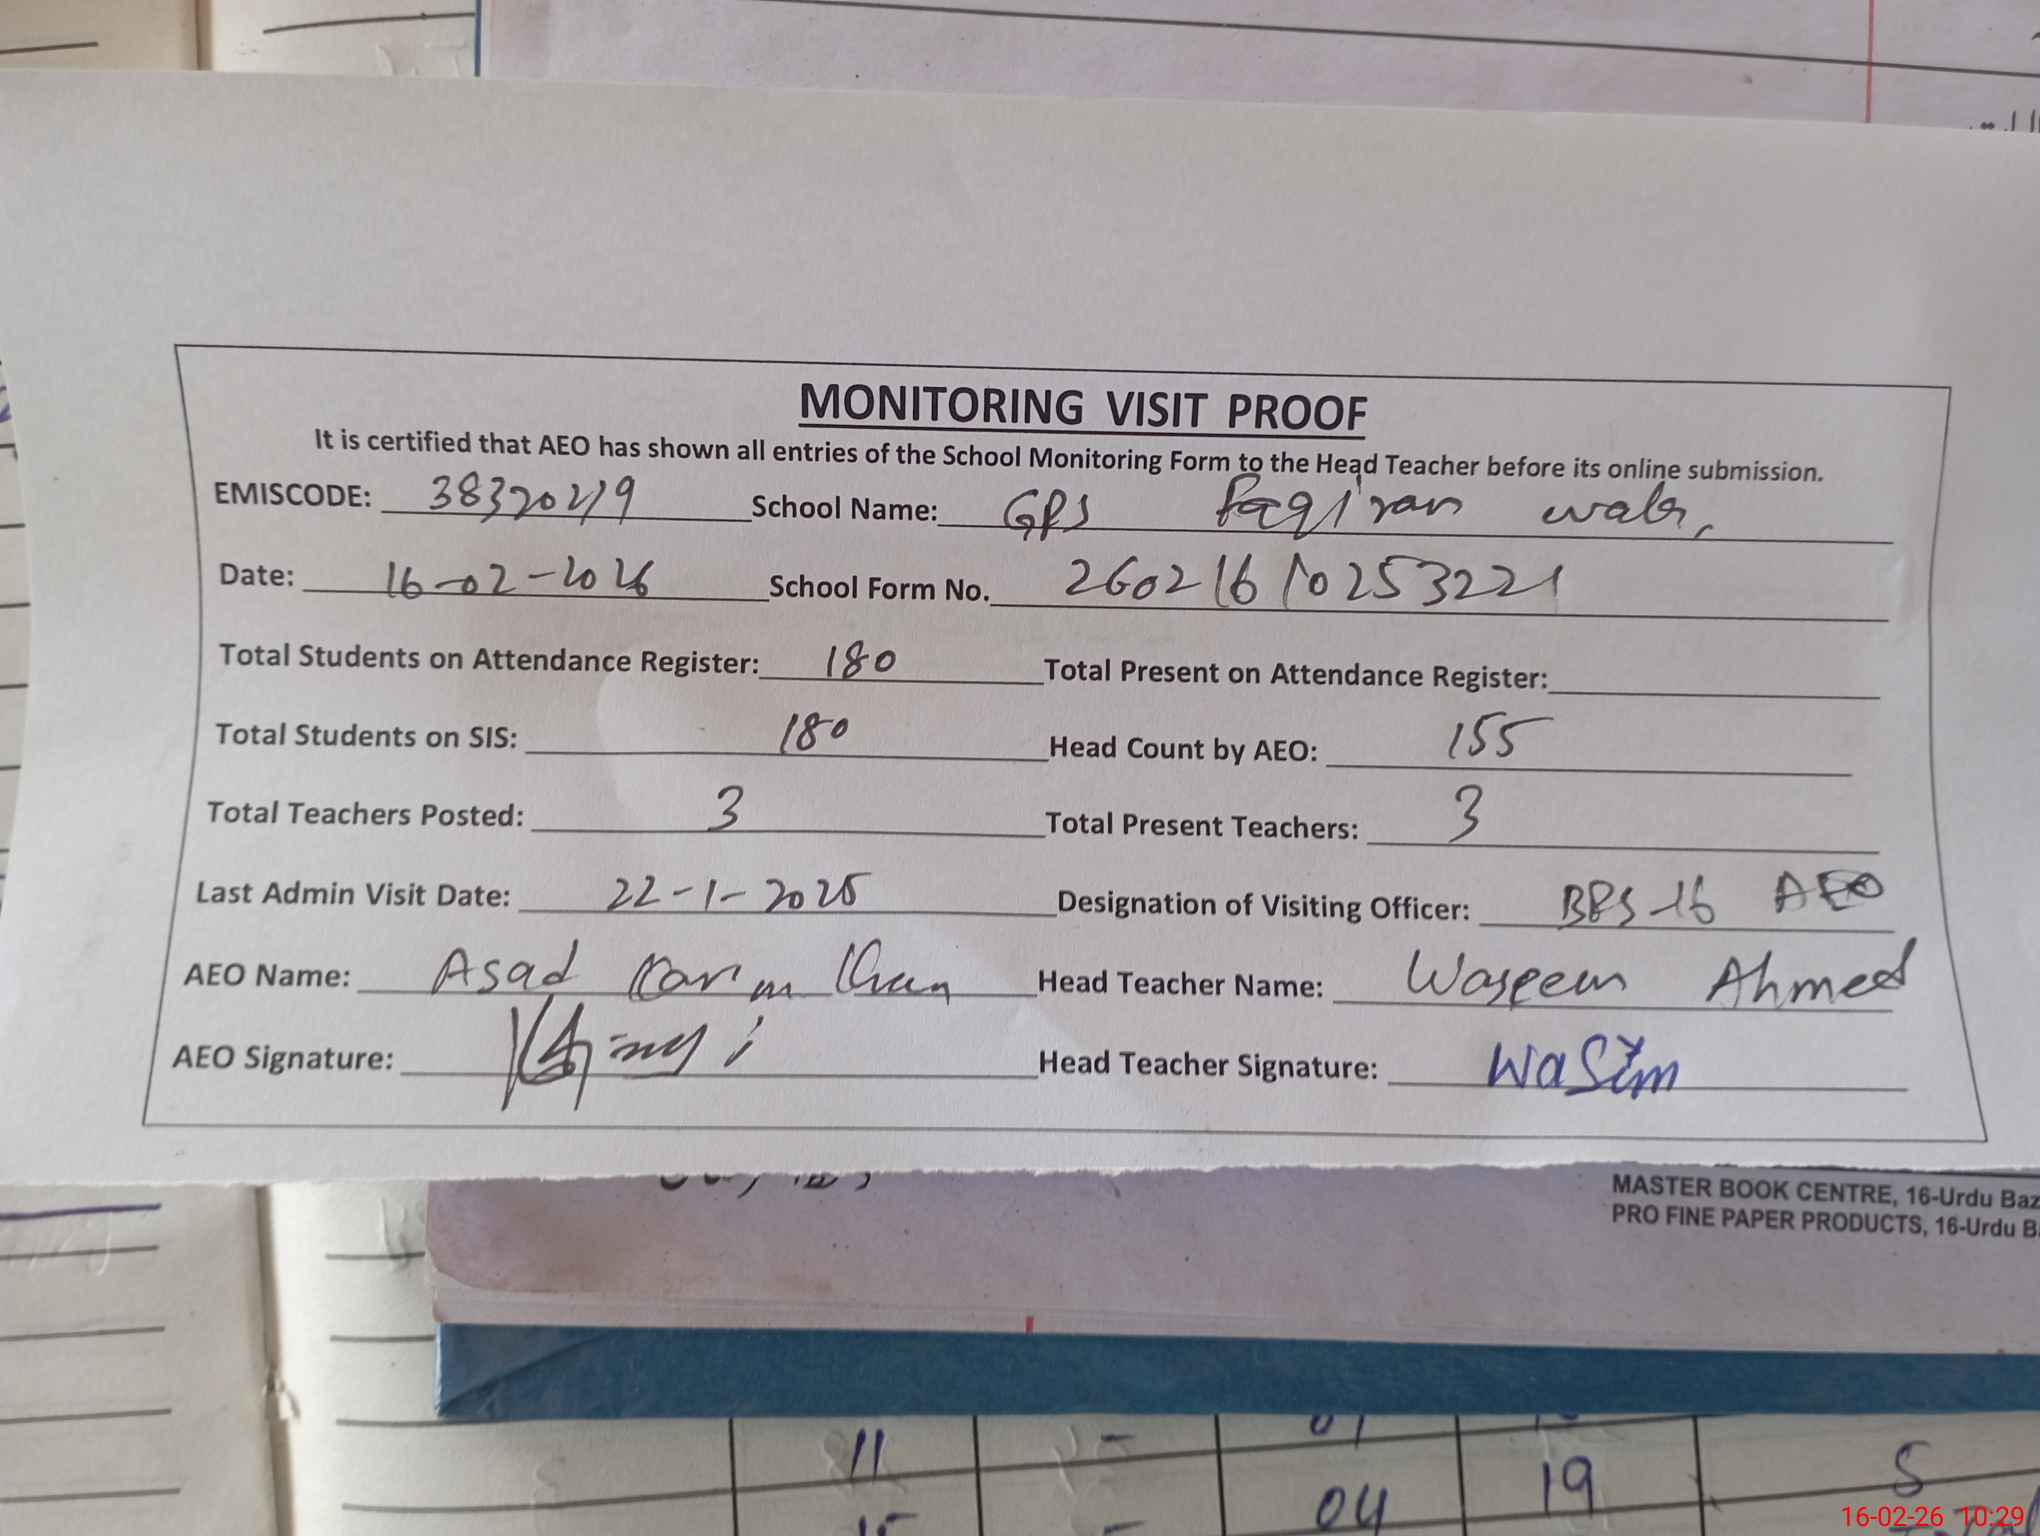 MONITORING VISIT PROOF
It is certified that AEO has shown all entries of the School Monitoring Form to the Head Teacher before its online submission.
EMISCODE: 38320219 School Name: GPS Faqiran wala
Date: 16-02-2026 School Form No. 26021610253221
Total Students on Attendance Register: 180 Total Present on Attendance Register:
Total Students on SIS: 180 Head Count by AEO: 155
Total Teachers Posted: 3 Total Present Teachers: 3
Last Admin Visit Date: 22-1-2025 Designation of Visiting Officer: BPS-16 AEO
AEO Name: Asad Karim Khan Head Teacher Name: Waseem Ahmed
AEO Signature: Head Teacher Signature: Wasim
MASTER BOOK CENTRE, 16-Urdu Baz
PRO FINE PAPER PRODUCTS, 16-Urdu B
11 -
04 19 S
16-02-26 10:29